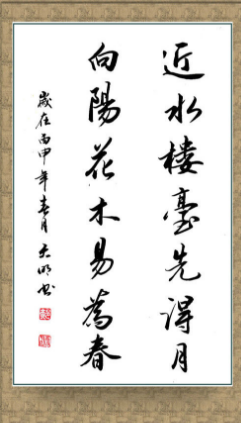 近水樓臺先得月
向陽花木易為春
歲在丙申年春月